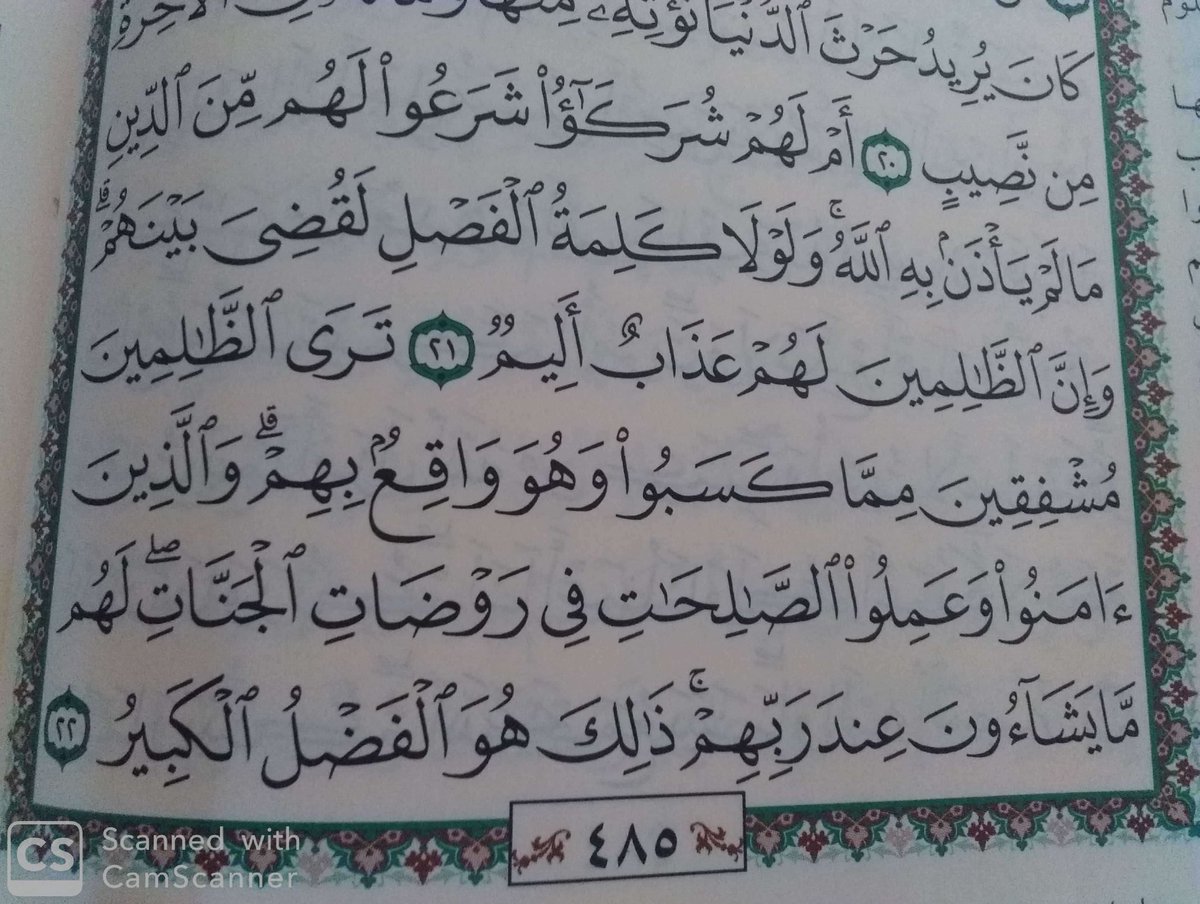 كَانَ يُرِيدُ حَرْثَ ٱلدُّنْيَا نُؤْتِهِۦ مِنْهَا
مِن نَّصِيبٍ ٢٠ أَمْ لَهُمْ شُرَكَـٰٓؤُا۟ شَرَعُوا۟ لَهُم مِّنَ ٱلدِّينِ
مَا لَمْ يَأْذَنۢ بِهِ ٱللَّهُۚ وَلَوْلَا كَلِمَةُ ٱلْفَصْلِ لَقُضِىَ بَيْنَهُمْۗ
وَإِنَّ ٱلظَّـٰلِمِينَ لَهُمْ عَذَابٌ أَلِيمٌ ٢١ تَرَى ٱلظَّـٰلِمِينَ
مُشْفِقِينَ مِمَّا كَسَبُوا۟ وَهُوَ وَاقِعٌۢ بِهِمْۗ وَٱلَّذِينَ
ءَامَنُوا۟ وَعَمِلُوا۟ ٱلصَّـٰلِحَـٰتِ فِى رَوْضَاتِ ٱلْجَنَّاتِۖ لَهُم
مَّا يَشَآءُونَ عِندَ رَبِّهِمْۚ ذَٰلِكَ هُوَ ٱلْفَضْلُ ٱلْكَبِيرُ ٢٢
٤٨٥
CS Scanned with
CamScanner